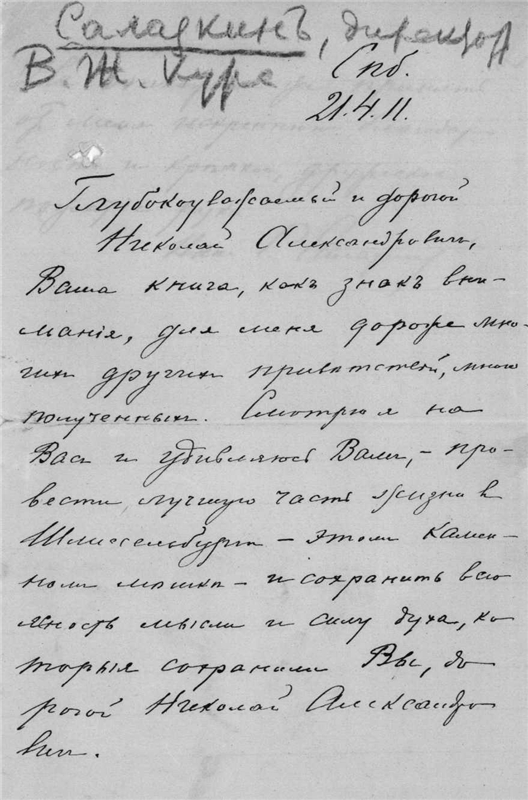 Саладкинъ, директор
В. Ж. Курс
Спб.
21.4.11.
Глубокоуважаемый и дорогой
Николай Александрович,
Ваша книга, какъ знакъ вни-
манія, для меня дороже мно-
гих других привѣтствій, мною
полученных. Смотрю я на
Вас и удивляюсь Вам, – про-
вести лучшую часть жизни в
Шлиссельбургѣ – этом камен-
ном мѣшкѣ – и сохранить всю
ясность мысли и силу духа, ко
торыя сохранили Вы, до
рогой Николай Александро
вич.